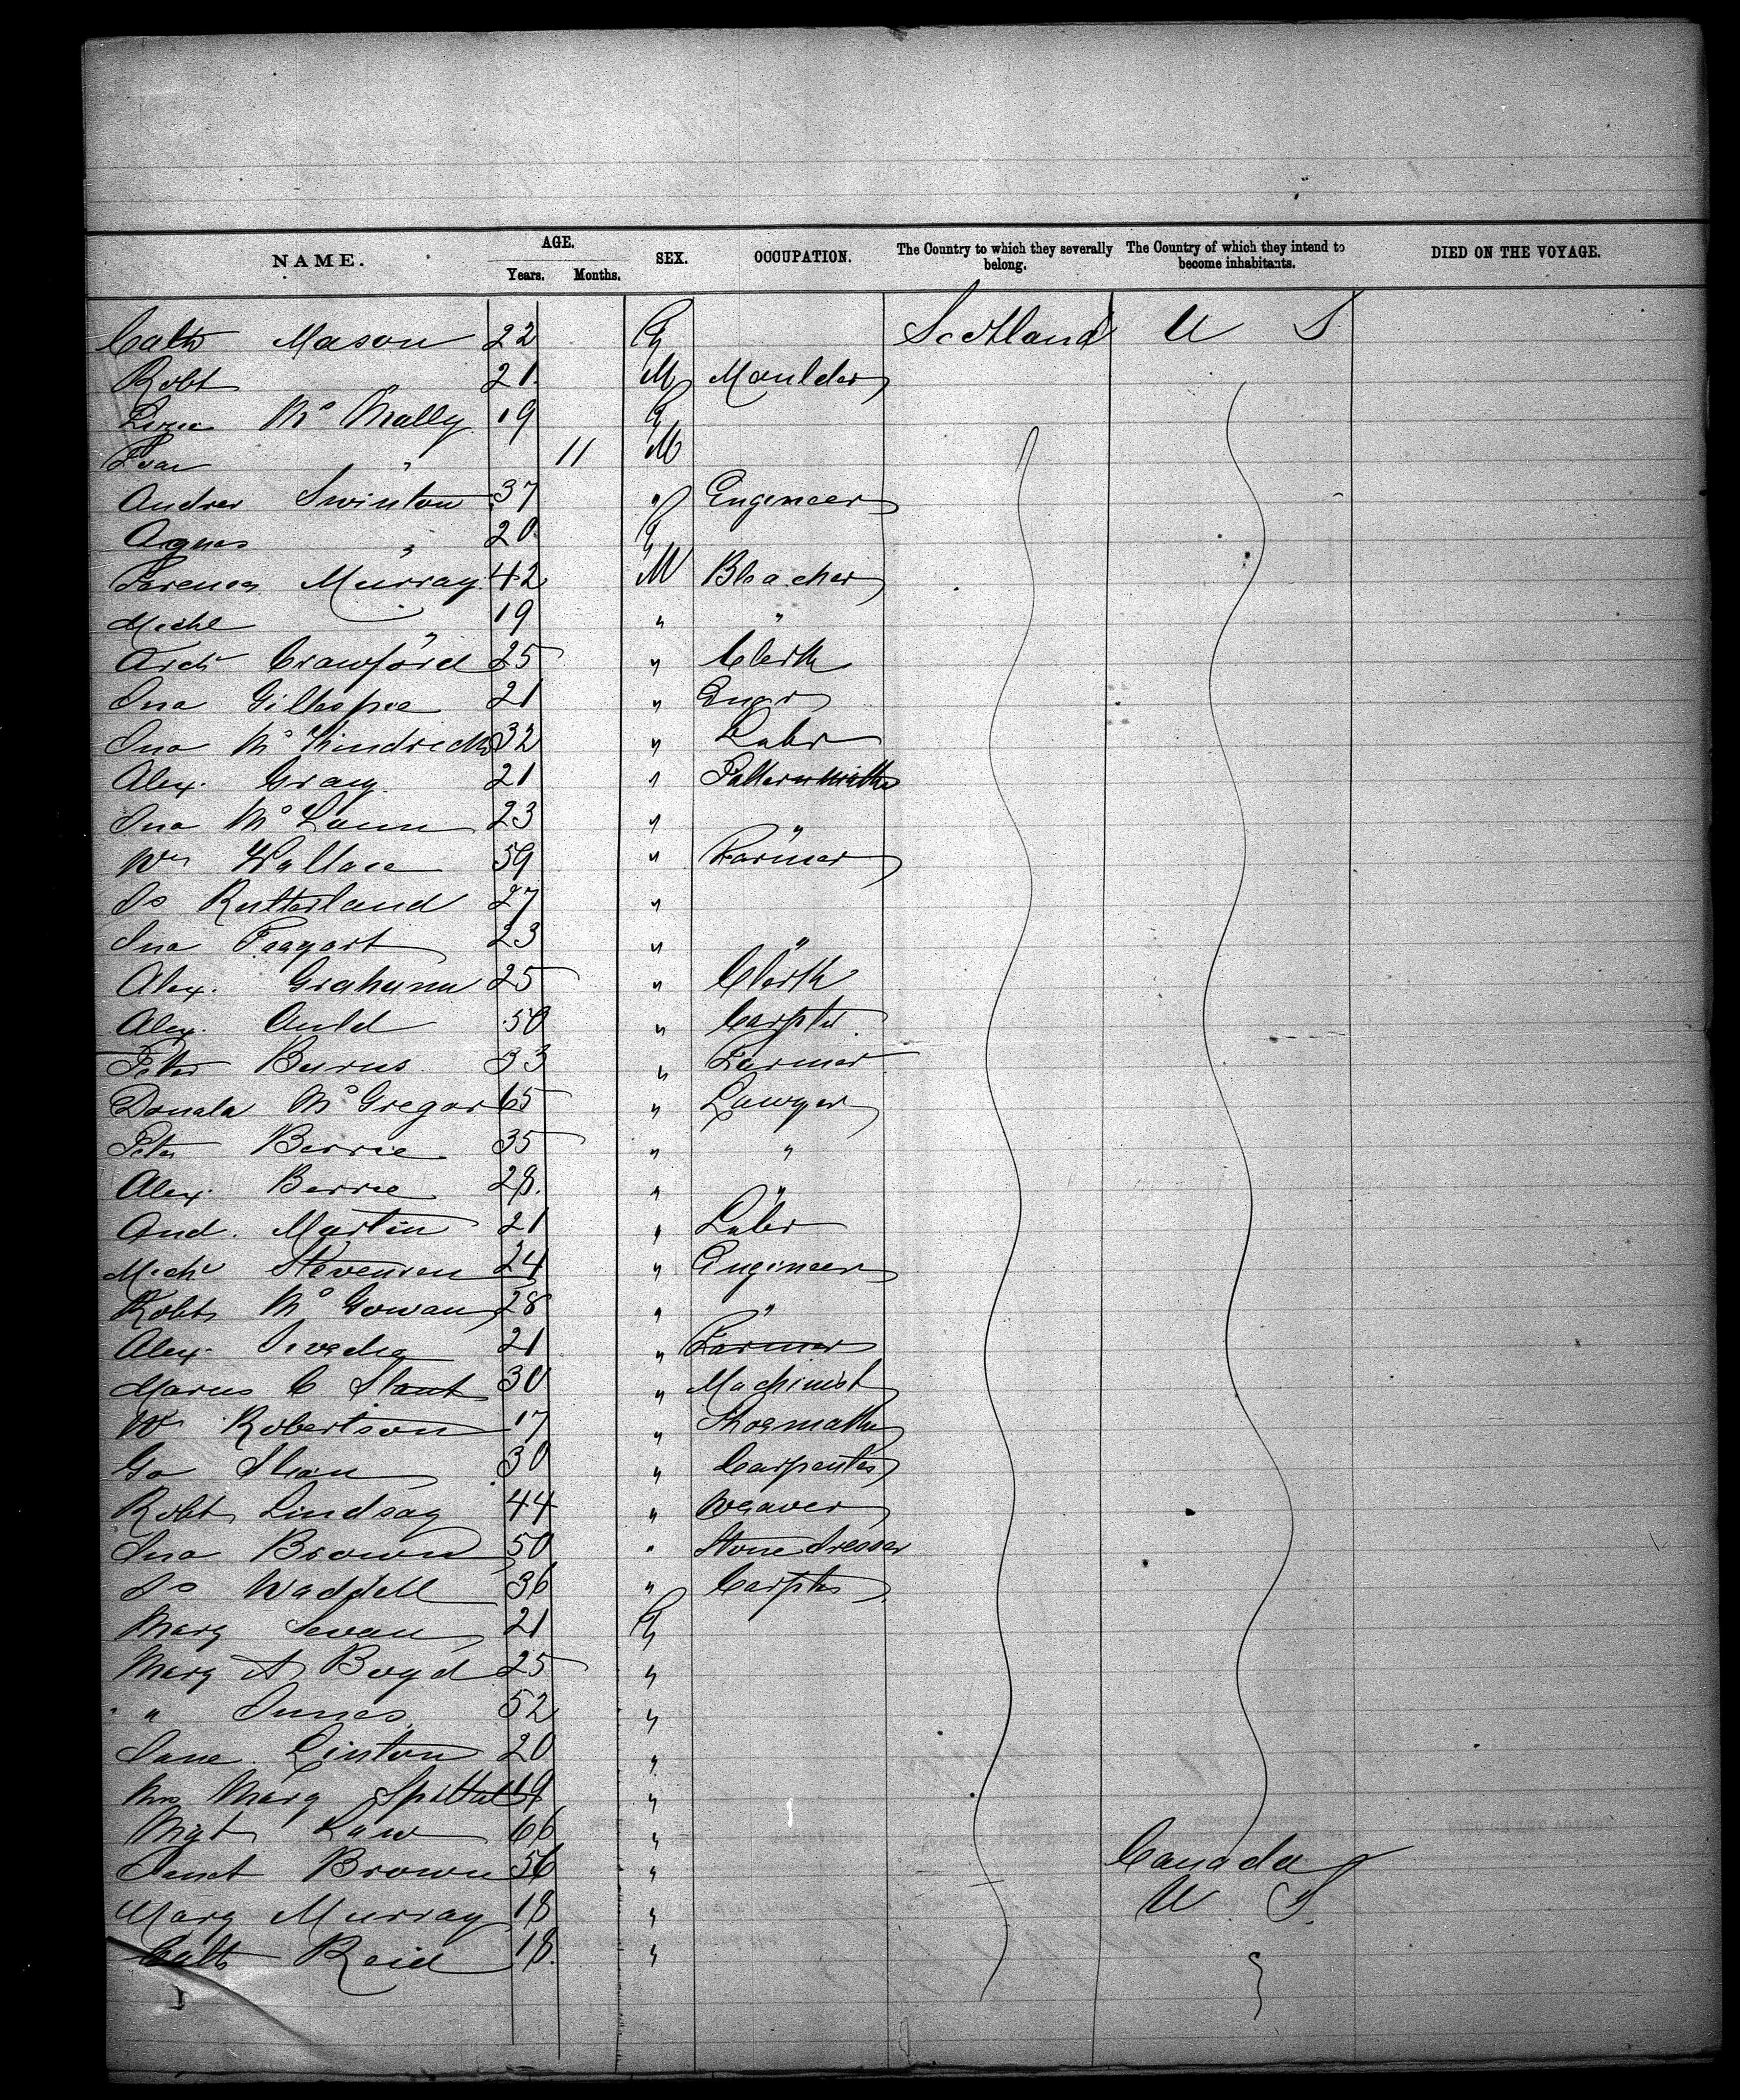 NAME. AGE. Years. Months. SEX. OCCUPATION. The Country to which they severally belong. The Country of which they intend to become inhabitants. DIED ON THE VOYAGE.
Cath Mason 22 F Scotland U S
Robt 21 M Moulder
Lizzie Mc Nally 19 F
" 11 M
Andrew Swinton 37 " Engineer
Agnes " 20 F
Terence Murray 42 M Bleacher
Michl " 19 " "
Archd Crawford 25 " Clerk
Jno Gillespie 21 " Engr
Jno Mc Kindrick 32 " Labr
Alex. Gray 21 " Patternmaker
Jno Mc 23 " "
Wm Wallace 59 " Farmer
Js Rutterland 27 "
Jno Taggart 23 " "
Alex. Graham 25 " Clerk
Alex. Auld 50 " Carptr.
Peter Burns 33 " Farmer
Donald Mc Gregor 65 " Lawyer
Peter Berrie 35 " "
Alex. Berrie 28. " "
And. Martin 21 " Labr
Michl Stevenson 24 " Engineer
Robt Mc Gowan 28 " "
Alex. 21 " Farmer
C 30 " Machinist
Wm Robertson 17 " Shoemaker
Geo 30 " Carpenter
Robt Lindsay 44 " Weaver
Jno Brown 50 " Stone dresser
Js Waddell 36 " Carptr
Mary 21 F
Mary A Boyd 25 "
" Innes 52 "
Jane Linton 20 "
Mrs Mary Spittal 19 "
Mgt Law 66 "
Janet Brown 56 " Canada
Mary Murray 18 " U S.
Cath Reid 18. "